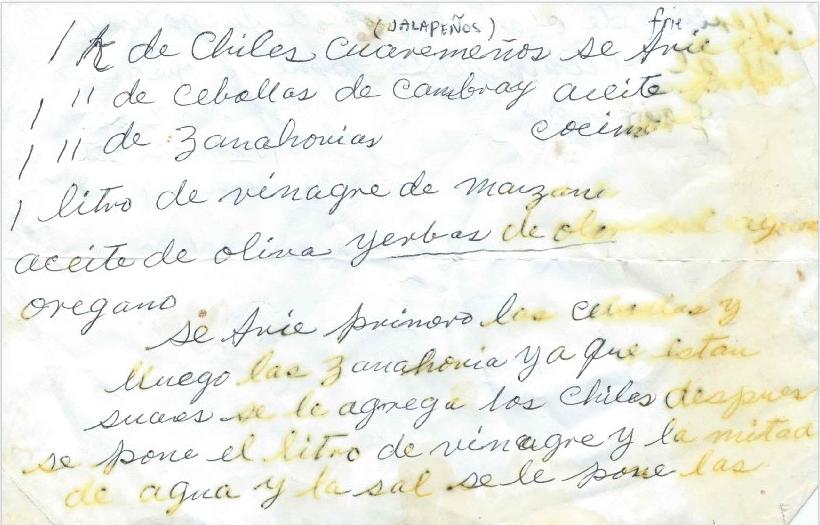 (JALAPEÑOS) frie
1 K de Chiles cuaremeños se frie
1 " de cebollas de cambray aceite
1 " de zanahorias cocina
1 litro de vinagre de manzana
aceite de oliva yerbas de olor
oregano
se frie primero las cebollas y
lluego las zanahoria ya que estan
suaes se le agrega los chiles despues
se pone el litro de vinagre y la mitad
de agua y la sal se le pone las